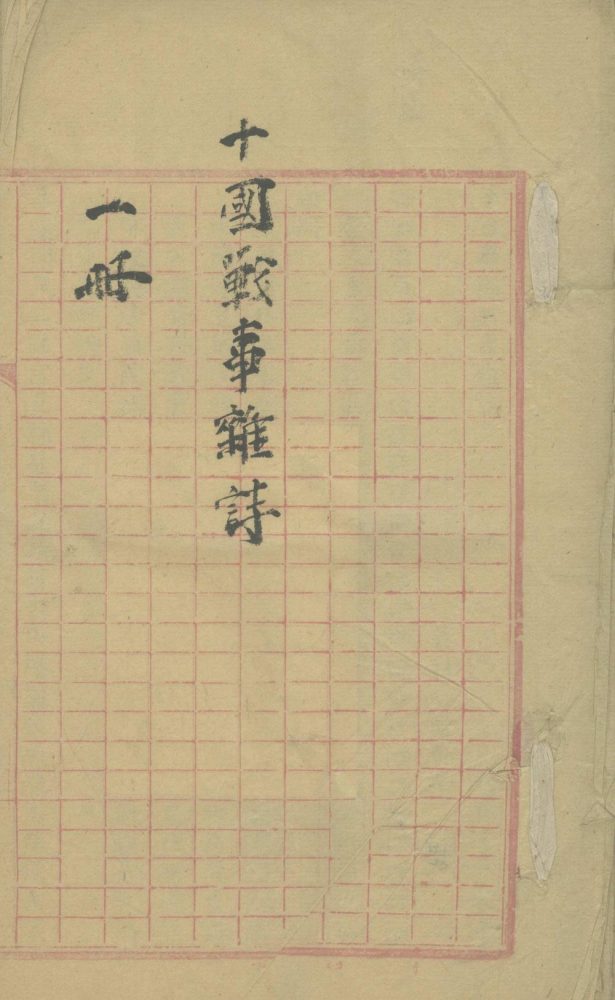 十國戰事雜誌
一册